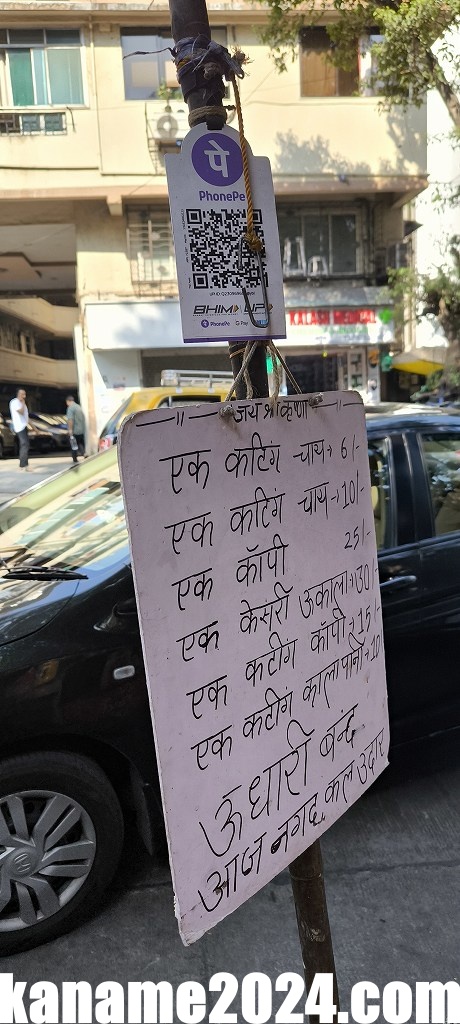 पे
PhonePe
BHIM UPI
PhonePe G Pay
KALASH MEDICAL
जय श्री कृष्णा
एक कटिंग चाय → 6/-
एक कटिंग चाय → 10/-
एक कॉपी 25/-
एक केसरी ऊकाला → 30/-
एक कटींग कॉपी → 15/-
एक कटींग कालापानी → 10
ऊधारी बन्द
आज नगद, कल उदार
kaname2024.com